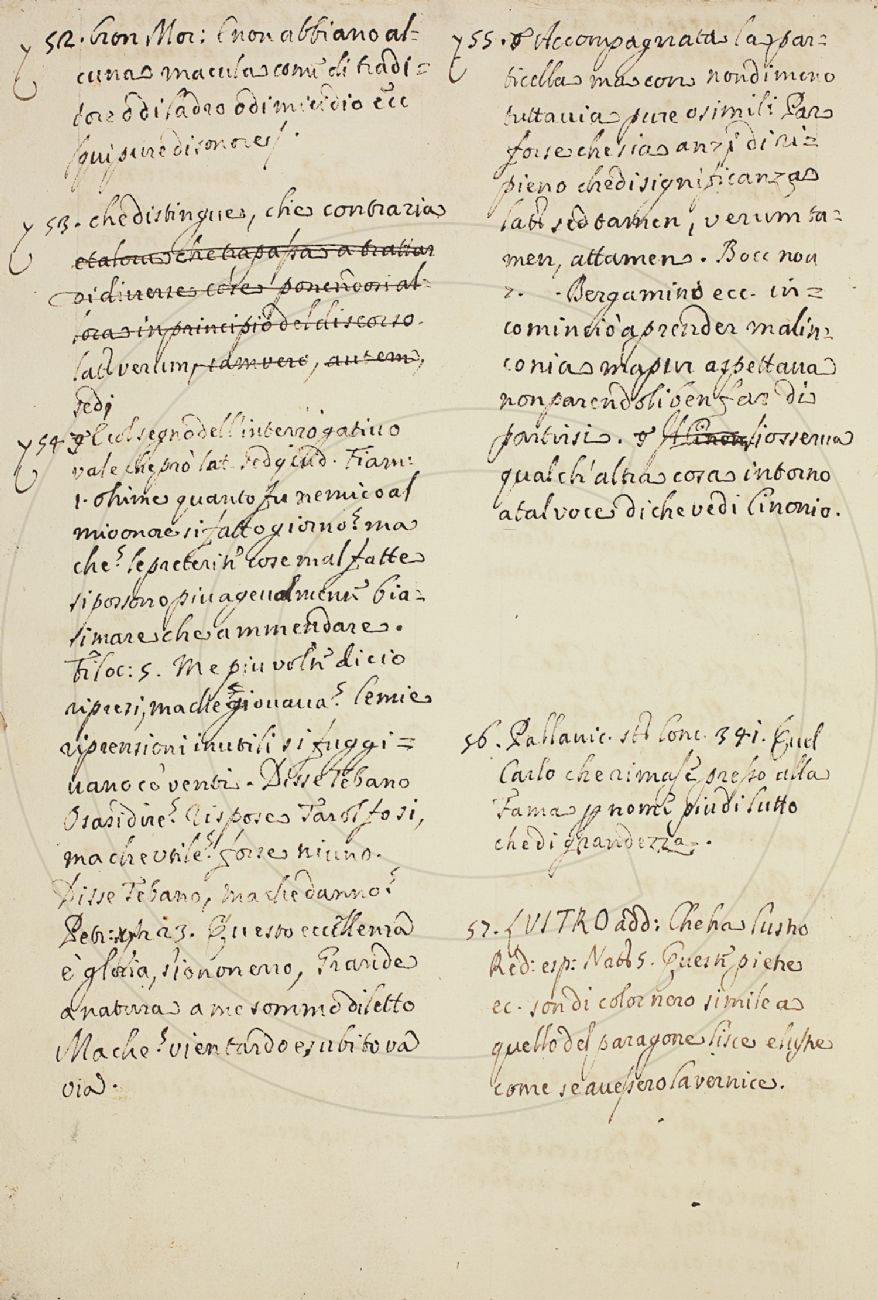 52. Cron Mor: E non abbiano al-
cuna macula come di tradi=
tore o di ladro o di micidio ecc
qui pure disonore
53. che distingue, che contraria
et alora che trapassa a trattar
di diverse cose ponendosi al-
lora in principio del discorso.
lat. verum, tamvero, autem,
sed
54. § E col segno dell'interrogativo
vale che però lat. sed quid. Fiam:
1. ohime quanto fu nemico al
mio onore sì fatto giorno! ma
che? le preterite cose mal fatte
si possono più agevolmente bia=
simare che ammendare.
Filoc: 5. Me più volte di ciò
ripresi, ma che giovava? le mie
riprensioni inutili si fuggi=
vano co venti. Disse Tebano
Osaridire? Rispose Tarolfo si,
ma che utile? forse niuno.
Disse Tebano, ma che danno?
Petr: 23. Questo eccellenza
è gloria, s'io non erro, Grande
a natura a me sommo diletto
Ma che? vien tardo e subito va
via.
55. § Accompagnata la par=
ticella ma con nondimeno
tuttavia pure o simili Par
forse che sia anzi di ri=
pieno che di significanza
lat. sed tamen, verum ta=
men, attamen. Bocc nov
7. Bergamino ecc. in=
cominciò a prender malin:
conia ma pur aspettava
non parendoli ben far di
partirsi. § Il Cinon, si osserva
qualch'altra cosa intorno
a tal voce di che vedi Cinonio.
56. Pallavic. st. Conc. 341. Quel
Carlo che rimase presso alla
Fama p nome più di tutto
che di grandezza.
57. LUSTRO add: Che ha lustro
Red: esp: Nat. 5. Queste pietre
ec. son di color nero simile a
quello del paragone lisce e lustre
come se avessero la vernice.